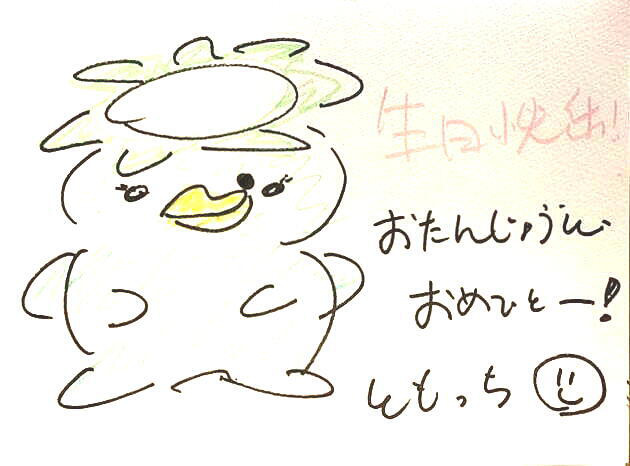 生日快乐!
おたんじょうび
おめでとー!
ともっち